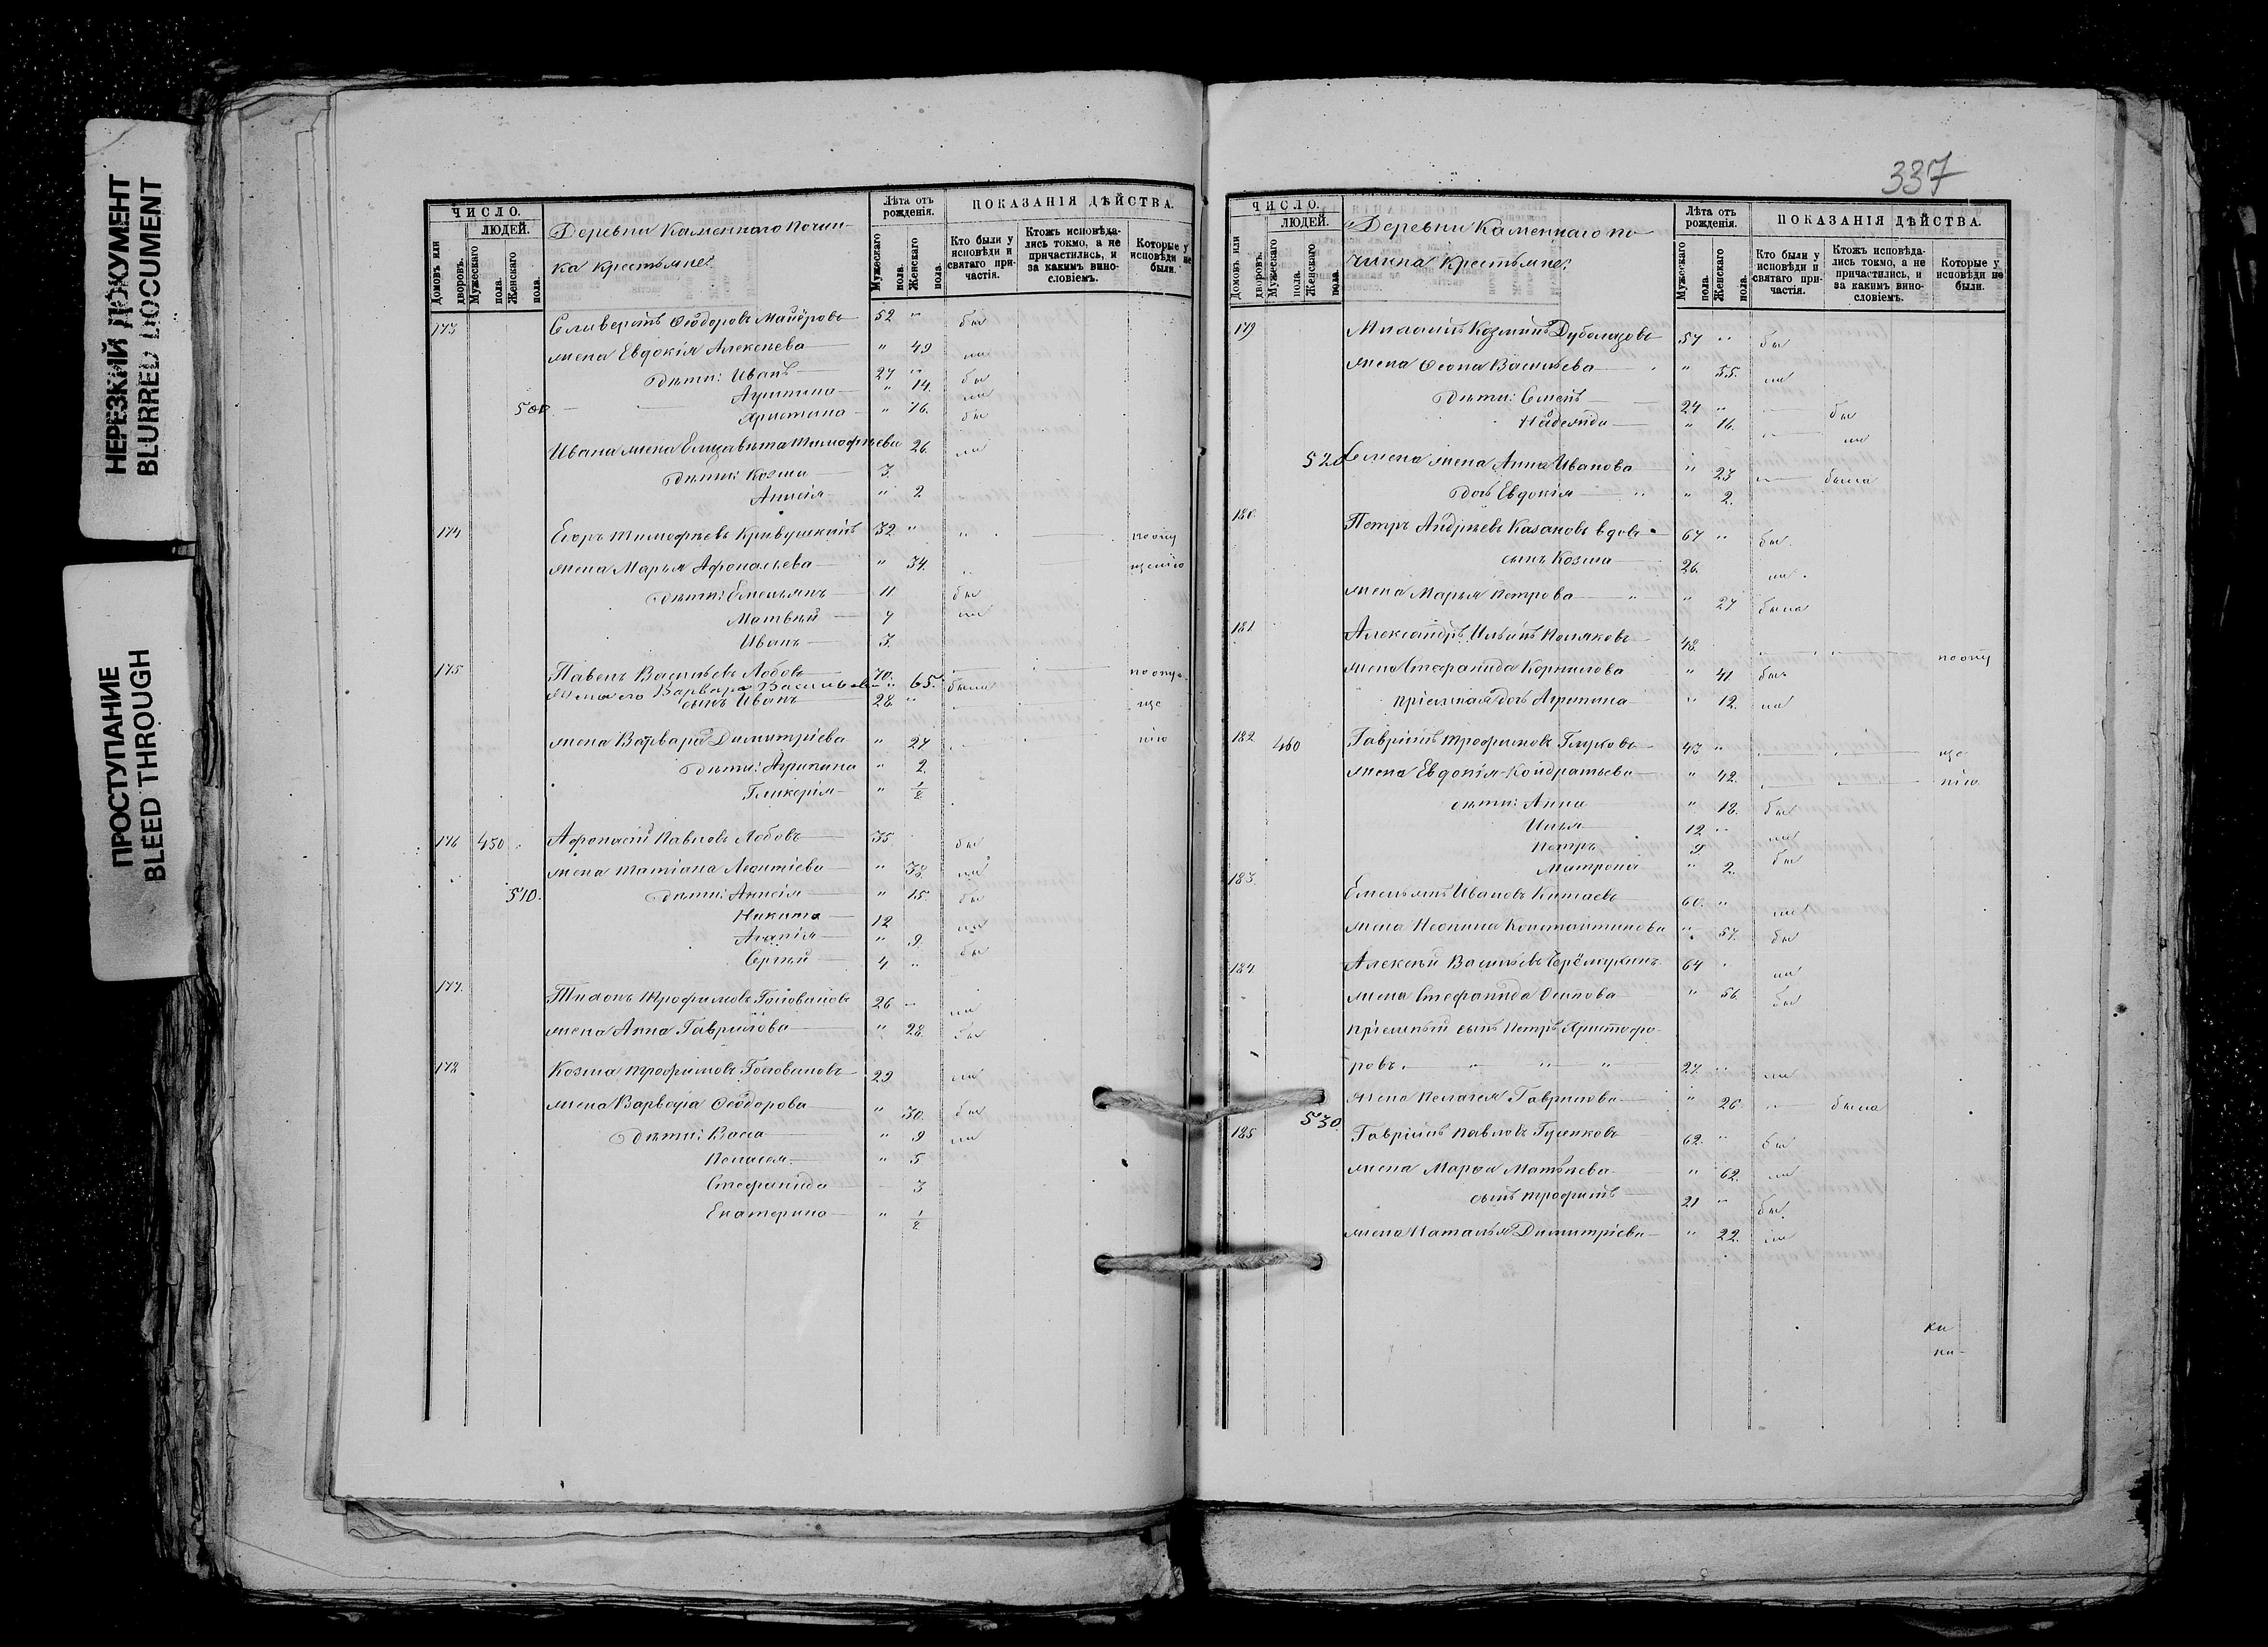 НЕРЕЗКИЙ ДОКУМЕНТ
BLURRED DOCUMENT
ПРОСТУПАНИЕ
BLEED THROUGH
ЧИСЛО.
ЛЮДЕЙ.
Домовъ или дворовъ.
Мужескаго пола.
Женскаго пола.
Деревни Каменнаго Почин-
ка крестьяне:
Лѣта отъ рожденія.
Мужескаго пола.
Женскаго пола.
ПОКАЗАНІЯ ДѢЙСТВА.
Кто были у исповѣди и святаго причастія.
Ктожъ исповѣдались токмо, а не причастились, и за какимъ винословіемъ.
Которые у исповѣди не были.
173 Селиверстъ Ѳеодоровъ 52 "
жена Евдокія Алексѣева " 49
дѣти: Иванъ 27 "
" 14.
500 Христина " 16.
Ивана жена Елизавета Тимофѣева 26.
дѣти: Козма 3.
Анисія " 2
174 Егоръ Тимофѣевъ Кривушкинъ 32 " по опу
жена Марья Афонасьева " 34. щенію
дѣти: Емельянъ 11
Матвѣй 7
Иванъ 3.
175 Павелъ Васильевъ Лобовъ 70. по опу
Жена его Варвара Васильева " 65. была
сынъ Иванъ 28. " ще
жена Варвара Димитріева " 27 нію
дѣти: Агрипина " 2.
Гликерія " 1/2
176 450 Афонасій Павловъ Лобовъ 35
жена Татіана Леонтіева " 38.
510. дѣти: Анисія " 15.
Никита 12
Агапія " 9.
Сергѣй 4 "
177. Тихонъ Трофимовъ Головановъ 26 "
жена Анна Гаврилова " 28.
178 Козма Трофимовъ Головановъ 29
жена Варвара Ѳеодорова " 30.
дѣти: Васса " 9
Пелагея " 5
Стефанида 3
Екатерина " 1/2
337
ЧИСЛО.
ЛЮДЕЙ.
Домовъ или дворовъ.
Мужескаго пола.
Женскаго пола.
Деревни Каменнаго по-
чинка крестьяне:
Лѣта отъ рожденія.
Мужескаго пола.
Женскаго пола.
ПОКАЗАНІЯ ДѢЙСТВА.
Кто были у исповѣди и святаго причастія.
Ктожъ исповѣдались токмо, а не причастились, и за какимъ винословіемъ.
Которые у исповѣди не были.
179 Михаилъ Козминъ 57 "
жена Васильева " 55.
дѣти: Семенъ 24 "
Надежда " 16.
520 Семена жена Анна Иванова " 23 была
дочь Евдокія " 2.
180. Петръ Андрѣевъ Казаковъ вдовъ 67 "
сынъ Козма 26.
жена Марья Петрова " 27 была
181 Александръ Ильинъ Поляковъ 48. по опу
жена Стефанида Корнилова " 41
пріемная дочь Агрипина " 12.
182 460 Гавріилъ Трофимовъ 43 " ще
жена Евдокія Кондратьева " 42. нію
дѣти: Анна " 18.
Илья 12 "
Петръ 9.
Матрона " 2.
183. Емельянъ Ивановъ Китаевъ 60. "
жена Неонила Константинова " 57.
184. Алексѣй Васильевъ Черёмухинъ 64
жена Стефанида Осипова " 56
пріемный сынъ Петръ Христофо-
ровъ. " " " 27. "
жена Пелагея Гаврилова " 26. была
530.
185 Гавріилъ Павловъ Гуленковъ 62. "
жена Марья Матвѣева " 62.
сынъ Трофимъ 21 "
жена Наталья Димитріева " 22.